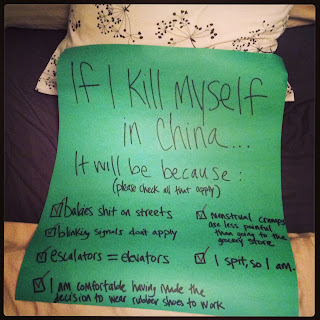 If I kill myself
in China...
It will be because:
(please check all that apply)
babies shit on streets
blinking signals don't apply
escalators = elevators
menstrual cramps
are less painful
than going to the
grocery store
I spit, so I am.
I am comfortable having made the
decision to wear rubber shoes to work